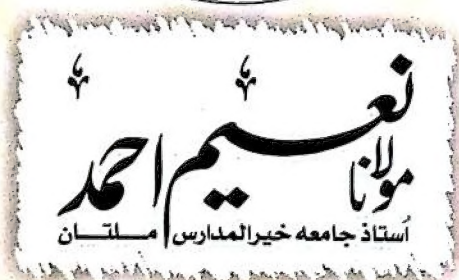 مولانا نعیم احمد
اُستاذ جامعه خیرالمدارس ملتان